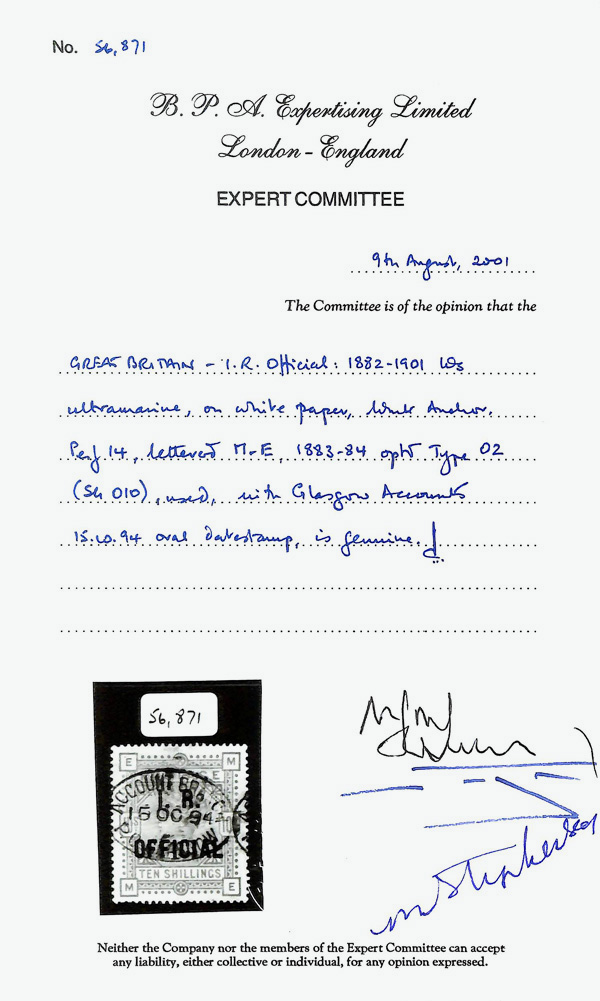 No. 56,871
B. P. A. Expertising Limited
London - England
EXPERT COMMITTEE
9th August, 2001
The Committee is of the opinion that the
GREAT BRITAIN - I.R. Official: 1882-1901 10s
ultramarine, on white paper, wmk Anchor,
Perf 14, lettered M-E, 1883-84 optd Type 02
(SG 010), used, with Glasgow Accounts
15.10.94 oval datestamp, is genuine.
56,871
E M
ACCOUNT
I. R.
15 OC 94
OFFICIAL
TEN SHILLINGS
M E
Neither the Company nor the members of the Expert Committee can accept
any liability, either collective or individual, for any opinion expressed.